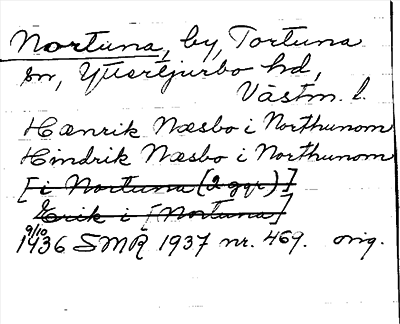 Nortuna, by, Tortuna
sn, Yttertjurbo hd,
Västm. l.
Hænrik Næsbo i Northunom
Hindrik Næsbo i Northunom
[i Nortuna (2 ggr)]
Erik i [Nortuna]
9/10
1436 SMR 1937 nr. 469. orig.